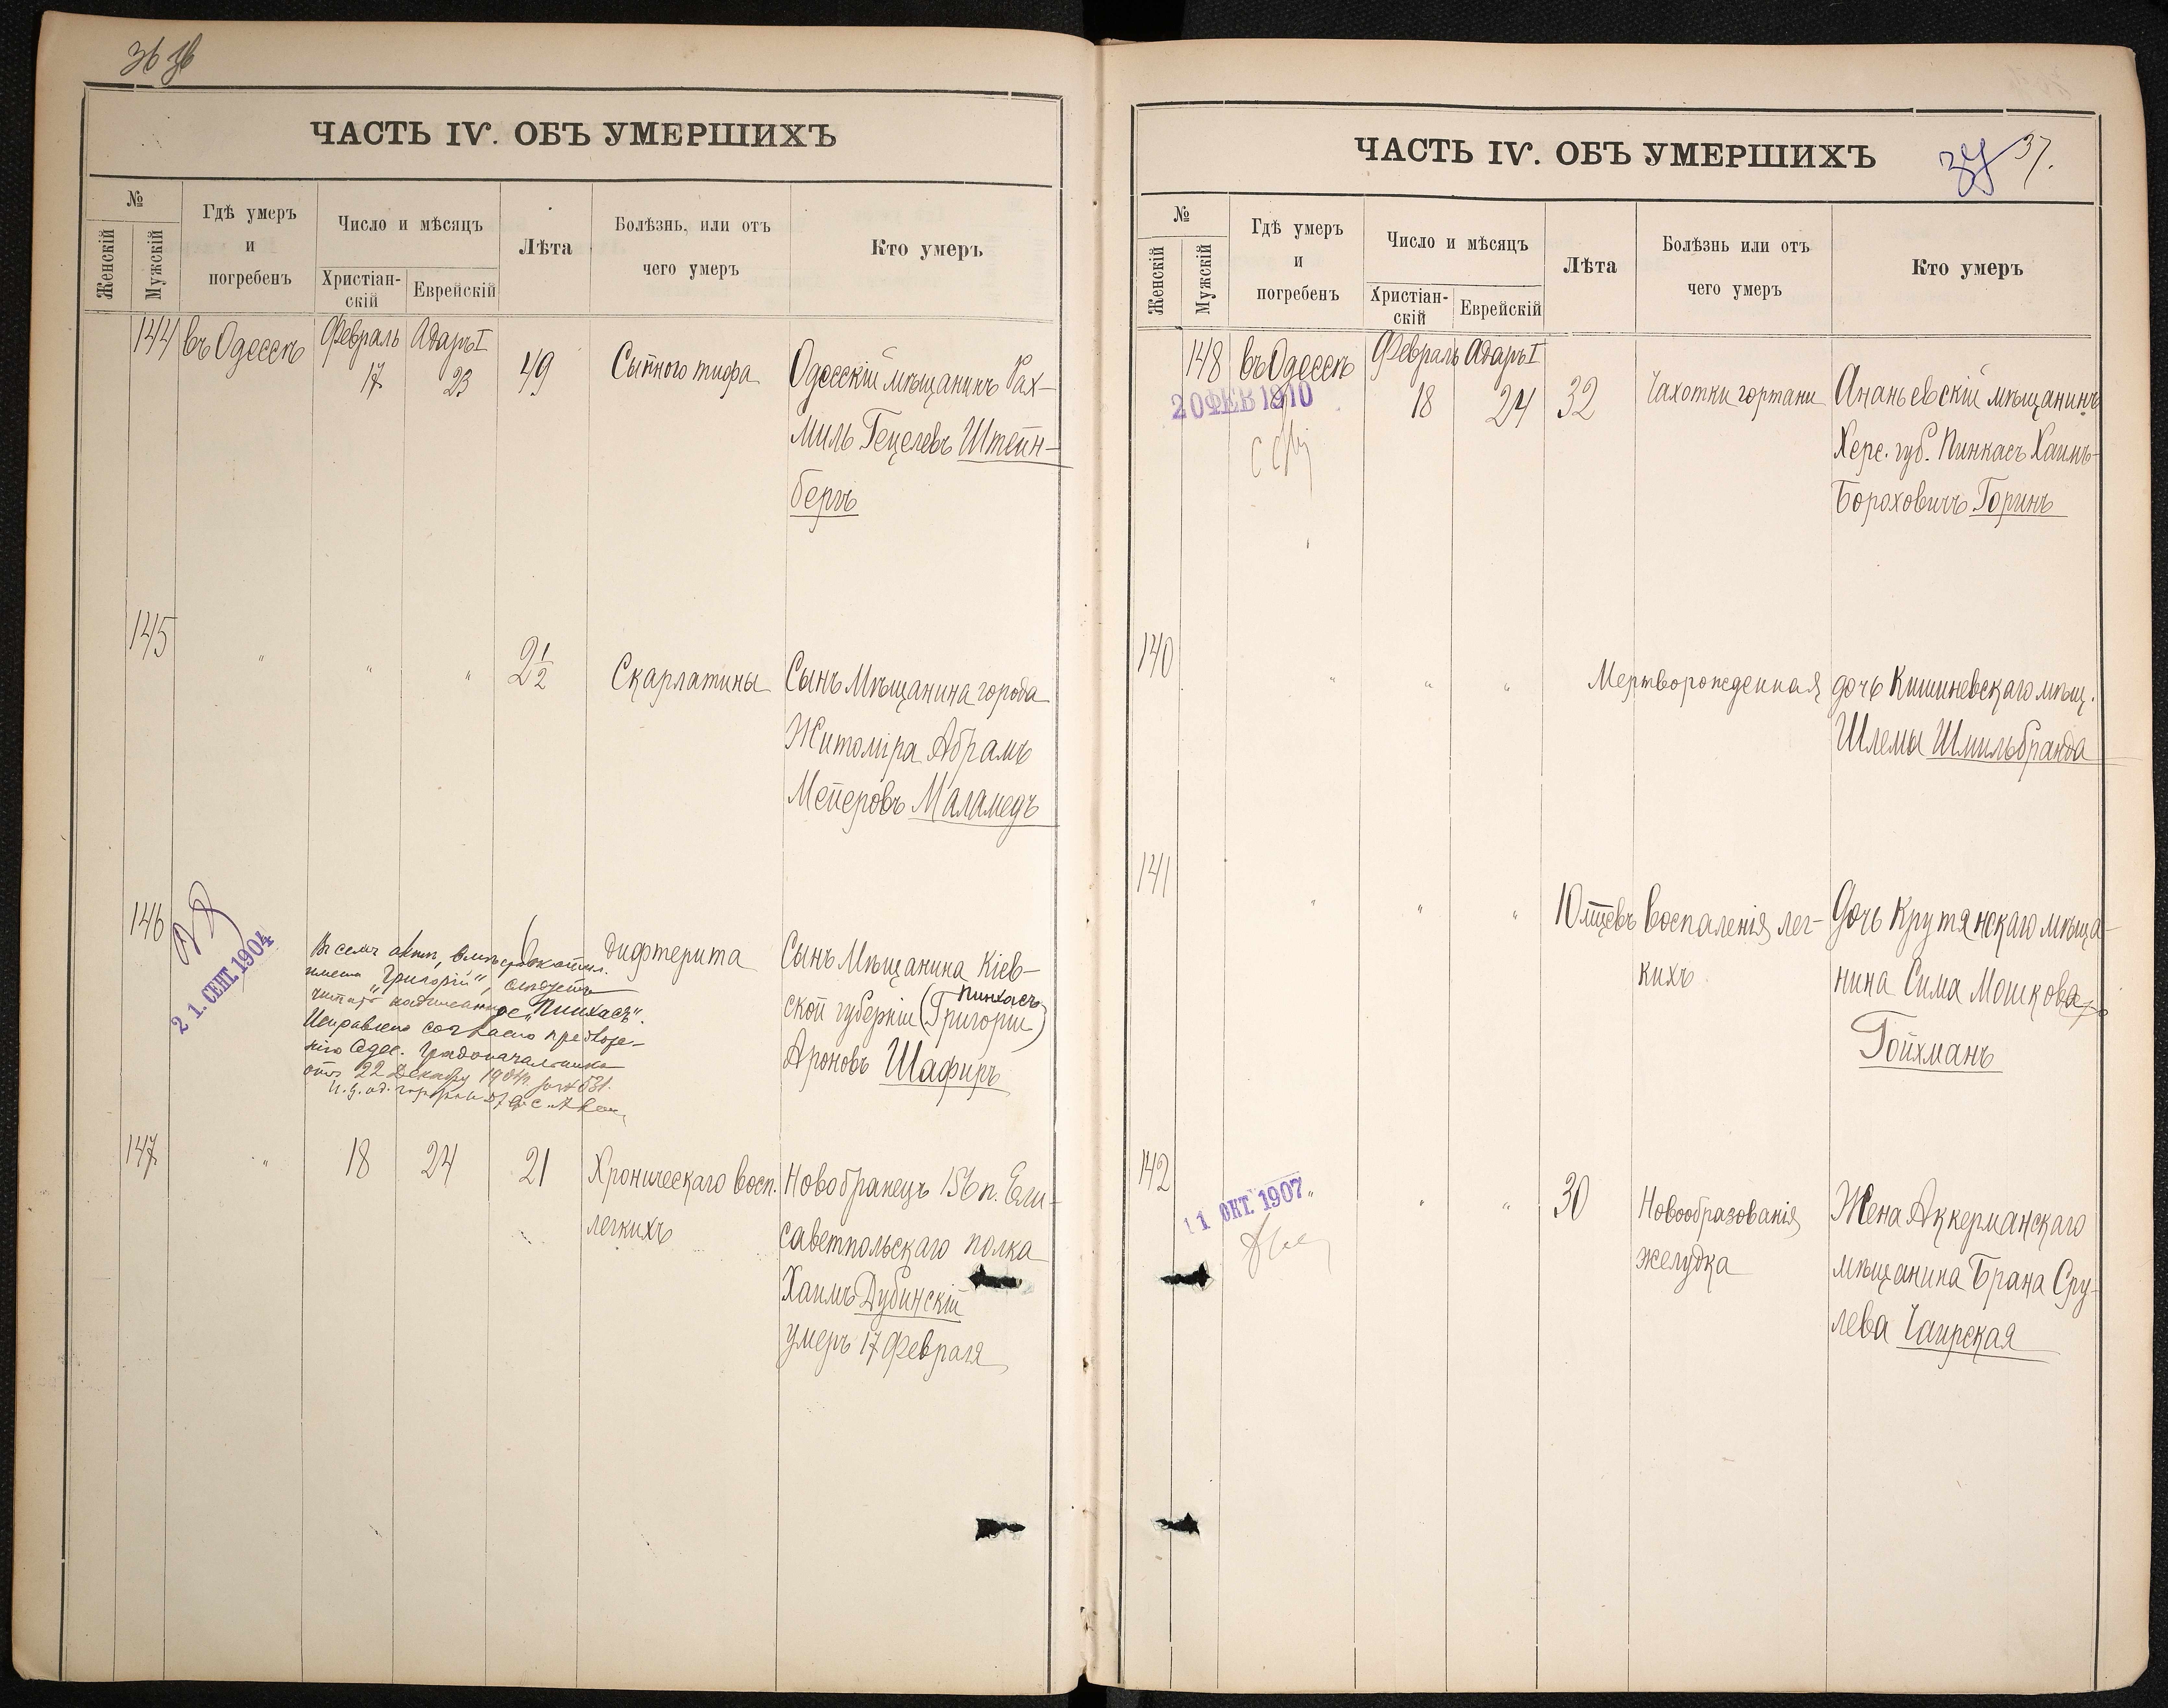 36 36
ЧАСТЬ IV. ОБЪ УМЕРШИХЪ
№
Женскій
Мужскій
Гдѣ умеръ
и
погребенъ
Число и мѣсяцъ
Христіан-
скій
Еврейскій
Лѣта
Болѣзнь, или отъ
чего умеръ
Кто умеръ
144 въ Одессѣ Февраль Адаръ I
17 23 49 Сыпного тифа Одесскій мѣщанинъ Рах-
миль Гецелевъ Штейн-
бергъ
145 " " " 2 1/2 Скарлатины Сынъ Мѣщанина города
Житоміра Абрамъ
Мейеровъ Маламедъ
146
21. СЕНТ. 1904
6 Дифтерита Сынъ Мѣщанина Кіев-
Пинхасъ
ской губерніи (Григорій)
Ароновъ Шафиръ
Въ семъ актѣ, вмѣсто
имени "Григорій", слѣдуетъ
читать надписанное "Пинхасъ".
Исправлено согласно предложе-
нію Одес. Градоначальника
отъ 22 Декабря 1904 г. за №
147 " 18 24 21 Хроническаго восп.
легкихъ
Новобранецъ 156 п. Ели-
саветпольскаго полка
Хаимъ Дубинскій
умеръ 17 Февраля
ЧАСТЬ IV. ОБЪ УМЕРШИХЪ
37 37.
№
Женскій
Мужскій
Гдѣ умеръ
и
погребенъ
Число и мѣсяцъ
Христіан-
скій
Еврейскій
Лѣта
Болѣзнь или отъ
чего умеръ
Кто умеръ
148 въ Одессѣ Февраль Адаръ I
20 ФЕВ 1910
18 24 32 Чахотки гортани Ананьевскій мѣщанинъ
Херс. губ. Пинкасъ Хаимъ-
Бороховичъ Горинъ
140 " " " Мертворожденная дочь Кишиневскаго мѣщ.
Шлемы Шмильбранда
141 " " " 10 мѣсцевъ воспаленія лег-
кихъ
Дочь Крутянскаго мѣща-
нина Сима Мошкова
Гойхманъ
142 " " " 30 Новообразованія
желудка
11 ОКТ. 1907
Жена Аккерманскаго
мѣщанина Брана Сру-
лева Чаирская